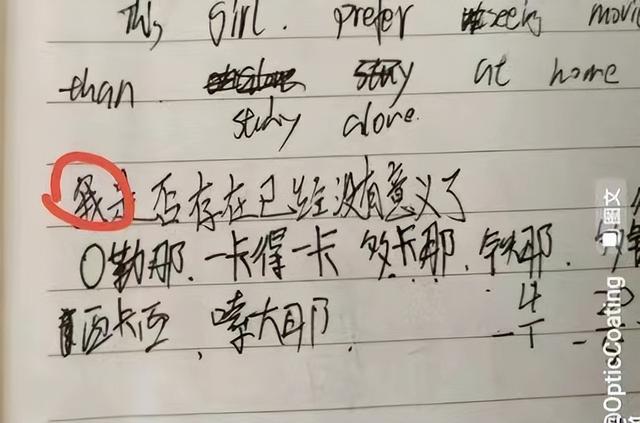 This girl. prefer seeing movi
than study at home
study alone.
我是否存在已经没有意义了
O勒那.一卡得一卡 敛卡那.钦那.
西卡西、嗦大耶.
图文
@OpticCoating